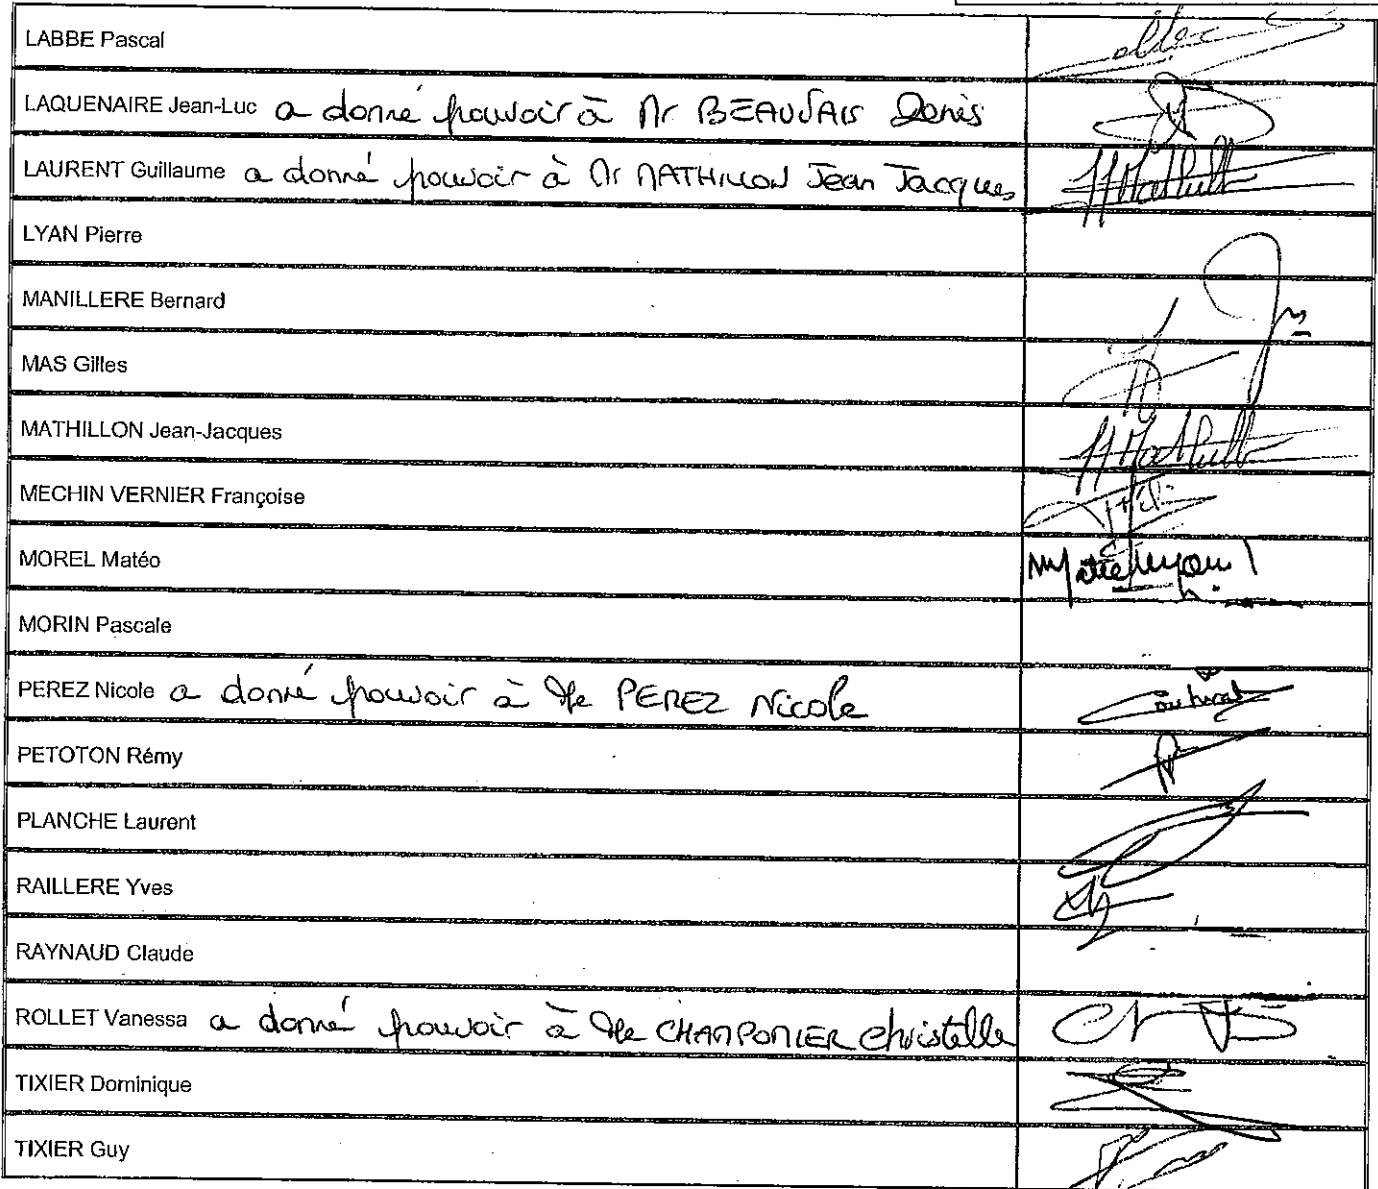 LABBE Pascal
LAQUENAIRE Jean-Luc a donné pouvoir à Mr BEAUVAIS Denis
LAURENT Guillaume a donné pouvoir à Mr MATHILLON Jean Jacques
LYAN Pierre
MANILLERE Bernard
MAS Gilles
MATHILLON Jean-Jacques
MECHIN VERNIER Françoise
MOREL Matéo
MORIN Pascale
PEREZ Nicole a donné pouvoir à Me PEREZ Nicole
PETOTON Rémy
PLANCHE Laurent
RAILLERE Yves
RAYNAUD Claude
ROLLET Vanessa a donné pouvoir à Me CHAMPOMIER Christelle
TIXIER Dominique
TIXIER Guy